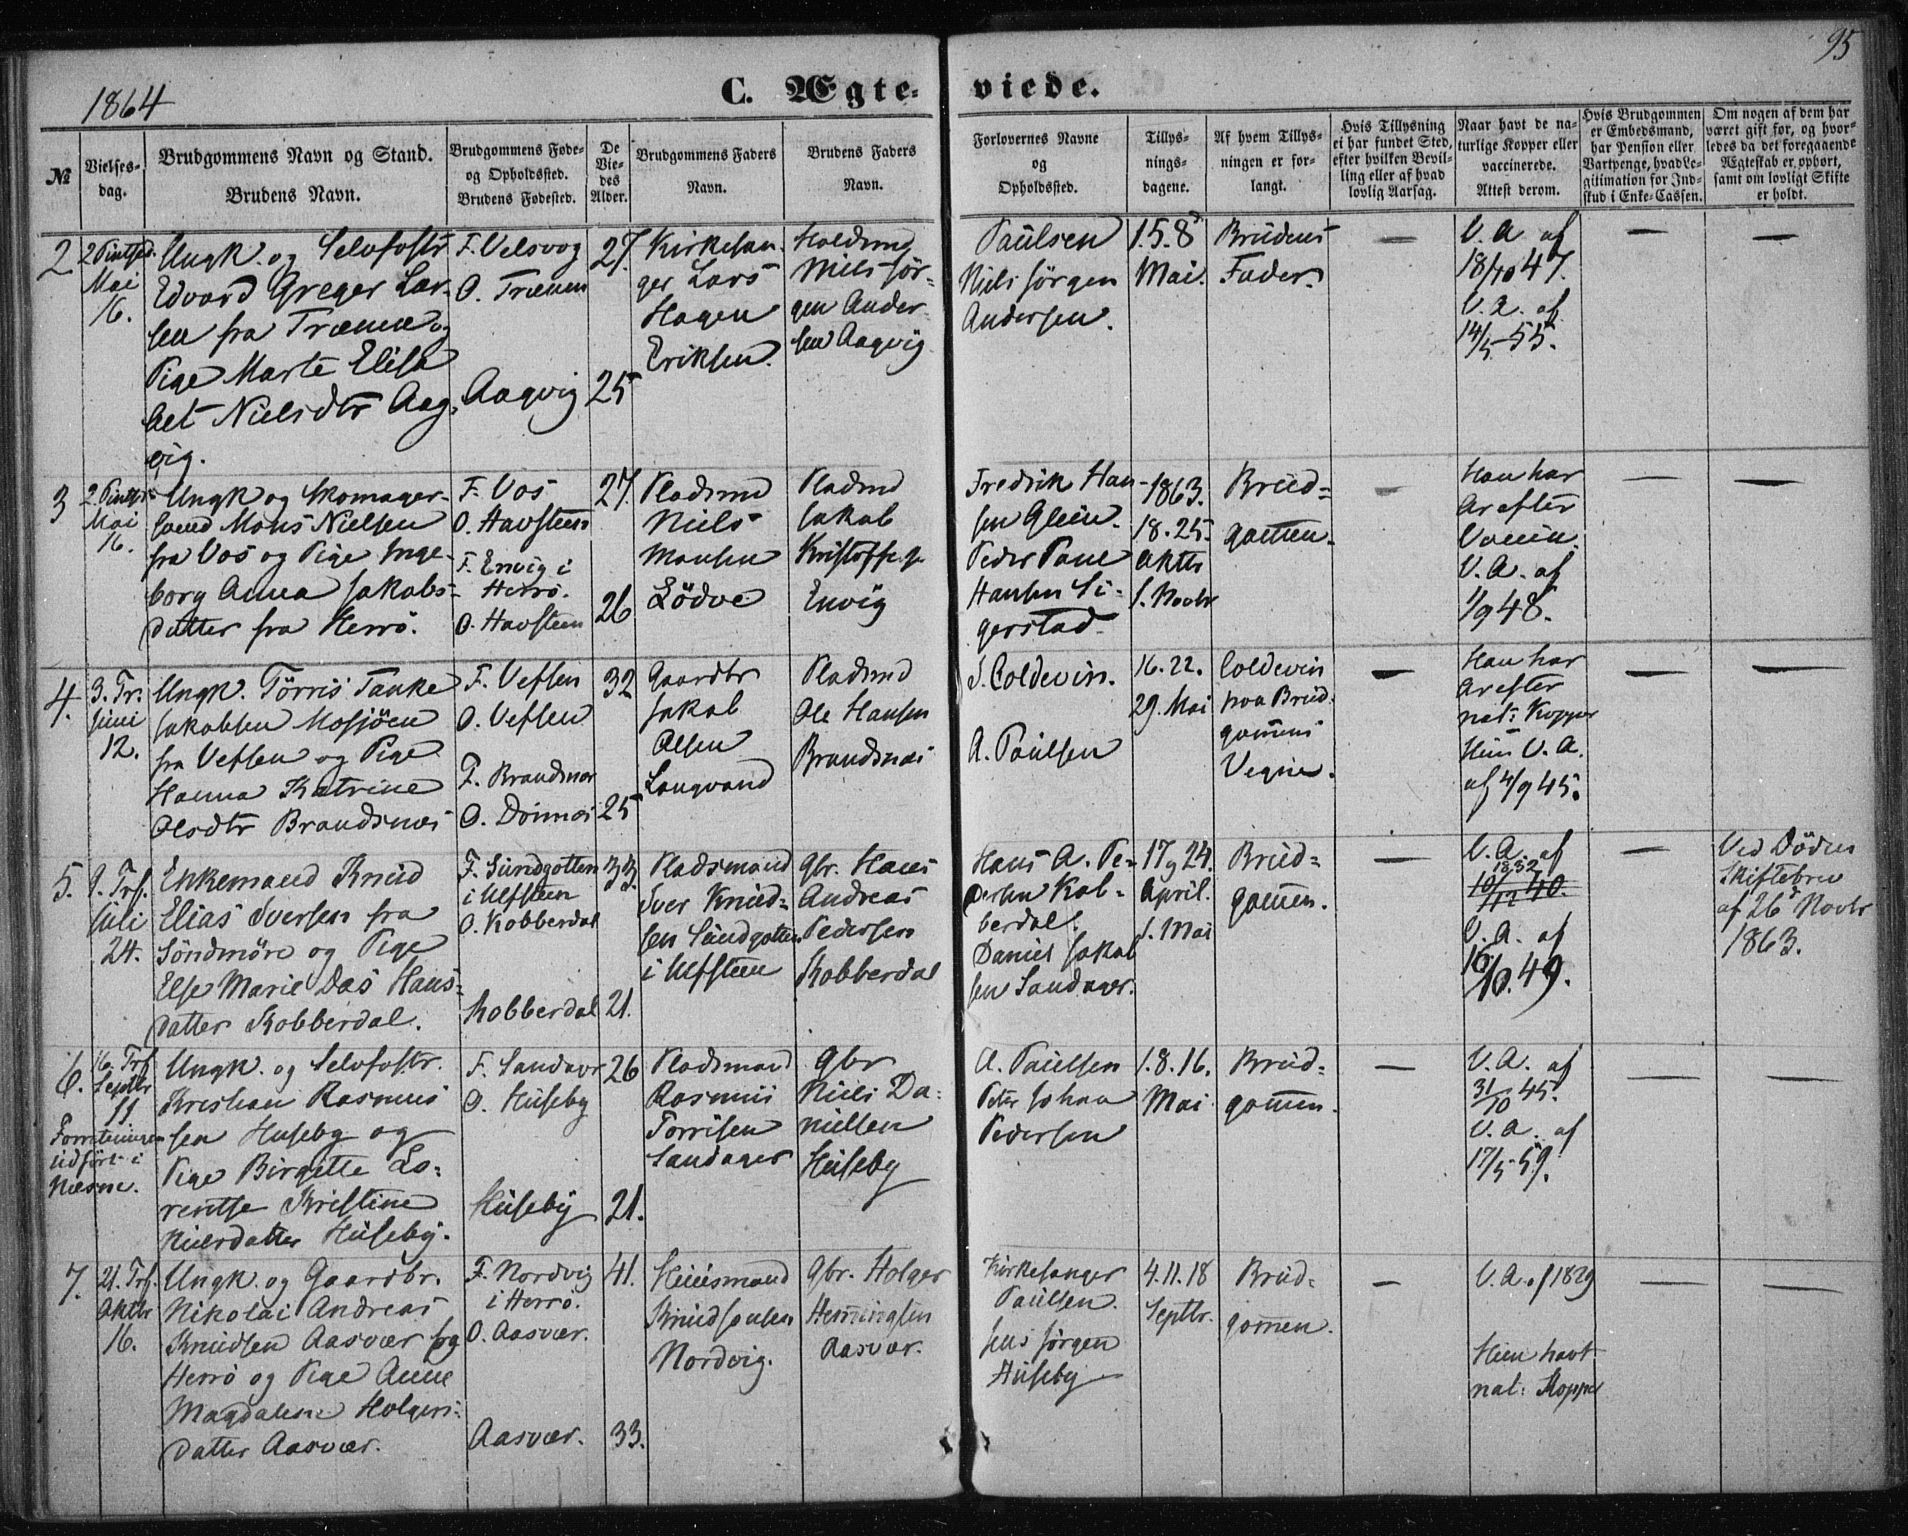 95
1864
C. Ægte-
viede.
№
Vielses-
dag.
Brudgommens Navn og Stand.
Brudens Navn.
Brudgommens Føde-
og Opholdssted.
Brudens Fødested.
De
Vie-
des
Alder.
Brudgommens Faders
Navn.
Brudens Faders
Navn.
Forlovernes Navne
og
Opholdssted.
Tillys-
nings-
dagene.
Af hvem Tillys-
ningen er for-
langt.
Hvis Tillysning
ei har fundet Sted,
efter hvilken Bevil-
ling eller af hvad
lovlig Aarsag.
Naar havt de na-
turlige Kopper eller
vaccinerede.
Attest derom.
Hvis Brudgommen
er Embedsmand,
har Pension eller
Vartpenge, hvad Le-
gitimation for Ind-
skud i Enke-Cassen.
Om nogen af dem har
været gift før, og hvor-
ledes da det foregaaende
Ægteskab er ophørt,
samt om lovligt Skifte
er holdt.
2
2 Pintsed.
Mai
16.
Ungk. og Selvfostr
Edvard Greger Lar-
sen fra Trænen og
Pige Marte Elisa
bet Nielsdtr Aag-
vig.
F. Velsvog
O. Trænen
Aagvig
27.
25
Kirkesan-
ger Lars
Hagen
Eriksen.
Holdsmd
Niels Jör-
gen Ander-
sen Aagvig
Paulsen
Niels Jörgen
Andersen.
1.5.8
Mai.
Brudens
Fader.
—
V. A af
18/10 47.
V. A. af
14/5 55.
—
—
3
2. Pintsd.
Mai
16.
Ungk og Skomager-
svend Mons Nielsen
fra Vos og Pige Inge-
borg Anna Jakobs-
datter fra Herrö.
F. Vos
O. Havsteen
F. Envig i
Herrö.
O. Havsteen
27.
26
Pladsmd
Niels
Monsen
Lödve
Pladsmd
Jakob
Kristoffersen
Envig
Fredrik Han-
sen Glein.
Peder Pane
Hansen Si-
gerstad.
1863.
18.25.
Oktbr
1. Novbr
Brud-
gommen.
—
Han har
Ar efter
Vaccin.
V. A. af
1/9 48.
—
—
4.
3. Tr.
Juni
12.
Ungk. Törris Tanke
Jakobsen Mosjöen
fra Vefsen og Pige
Hanna Katrine
Olsdtr Brandsnes
F. Vefsen
O. Vefsen
F. Brandsnes
O. Dönnes
32
25
Gaardbr
Jakob
Olsen
Langvand
Pladsmd
Ole Hansen
Brandsnes
J. Coldevin.
A. Paulsen
16.22.
29. Mai
Coldevin
paa Brud-
gommens
Vegne.
—
Han har
Ar efter
nat: Kopper
Hun V. A.
af 4/9 45.
—
—
5.
9. Trf.
Juli
24.
Enkemand Knud
Elias Iversen fra
Söndmöre og Pige
Else Marie Das Hans-
datter Kobberdal.
F. Sundgotten
i Ulfsteen
O. Kobberdal
Kobberdal
33.
21.
Pladsmand
Iver Knud-
sen Sundgotten
i Ulfsteen
Gbr. Hans
Andreas
Pedersen
Kobberdal
Hans A. Pe-
dersen Kob-
berdal.
Daniel Jakob
sen Sandager.
17 og 24.
April.
1. Mai
Brud-
gommen.
—
V. A. af
1832
10/12 40.
V. A. af
16/10. 49.
—
Ved Döden
Skiftebrev
af 26 Novbr
1863.
6.
16 Trf.
Septbr
11.
Forretningen
udfört i
Næsne.
Ungk. og Selvfostr.
Kristian Rasmus
sen Huseby og
Pige Birgitte Lo-
rentse Kristine
Nielsdatter Huseby.
F. Sandager
O. Huseby
Huseby
26
21.
Pladsmand
Rasmus
Torrisen
Sandager
Gbr
Niels Da-
nielsen
Huseby
A. Paulsen
Peter Johan
Pedersen
1.8.16.
Mai
Brud-
gommen.
—
V. A. af
31/10 45.
V. A. af
17/5 59.
—
—
7.
21. Trf.
Oktbr
16.
Ungk. og Gaardbr.
Nikolai Andreas
Knudsen Aasvær fra
Herrö og Pige Anne
Magdalene Holgers-
datter Aasvær.
F. Nordvig
i Herrö.
O. Aasvær.
Aasvær.
41.
33.
Huusmand
Knud Jensen
Nordvig.
Gbr. Holger
Henningsen
Aasvær.
Kirkesanger
Paulsen.
Jens Jörgen
Huseby
4.11.18
Septbr.
Brud-
gommen.
—
V. A. af 1829
Hun havt
nat: Kopper
—
—